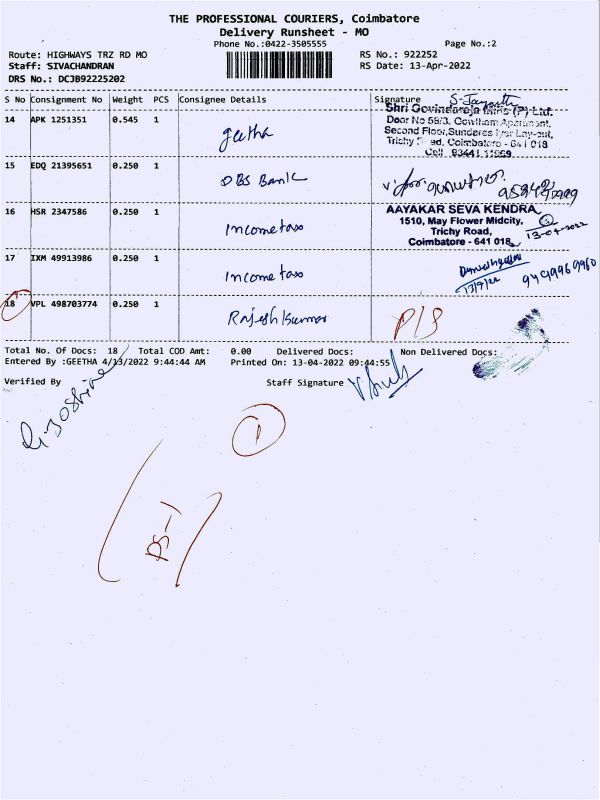 THE PROFESSIONAL COURIERS, Coimbatore
Delivery Runsheet - MO
Phone No.:0422-3505555
Page No.:2
Route: HIGHWAYS TRZ RD MO
RS No.: 922252
Staff: SIVACHANDRAN
RS Date: 13-Apr-2022
DRS No.: DCJB92225202
S No Consignment No Weight PCS Consignee Details Signature
14 APK 1251351 0.545 1
geetha
Shri Govindaraja Mills (P) Ltd.
Door No 58/3, Gowtham Apartment,
Second Floor, Sunderas Iyer Lay-out,
Trichy Road, Coimbatore - 641 018
Cell : 93441 11969
15 EDQ 21395651 0.250 1
DBS Bank
16 HSR 2347586 0.250 1
Income tax
AAYAKAR SEVA KENDRA
1510, May Flower Midcity,
Trichy Road,
Coimbatore - 641 018
13-04-2022
17 IXM 49913986 0.250 1
Income tax
18 VPL 498703774 0.250 1
Rajesh Kumar
P/S
Total No. Of Docs: 18 Total COD Amt: 0.00 Delivered Docs: Non Delivered Docs:
Entered By :GEETHA 4/13/2022 9:44:44 AM Printed On: 13-04-2022 09:44:55
Verified By Staff Signature
1
PS-1